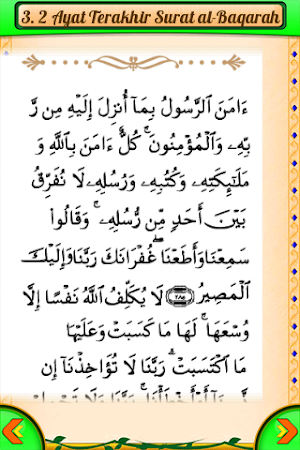 3. 2 Ayat Terakhir Surat al-Baqarah
ءَامَنَ ٱلرَّسُولُ بِمَآ أُنزِلَ إِلَيْهِ مِن رَّ
بِّهِۦ وَٱلْمُؤْمِنُونَ ۚ كُلٌّ ءَامَنَ بِٱللَّهِ وَ
مَلَٰٓئِكَتِهِۦ وَكُتُبِهِۦ وَرُسُلِهِۦ لَا نُفَرِّقُ
بَيْنَ أَحَدٍ مِّن رُّسُلِهِۦ ۚ وَقَالُوا۟
سَمِعْنَا وَأَطَعْنَا ۖ غُفْرَانَكَ رَبَّنَا وَإِلَيْكَ
ٱلْمَصِيرُ ﴿٢٨٥﴾ لَا يُكَلِّفُ ٱللَّهُ نَفْسًا إِلَّا
وُسْعَهَا ۚ لَهَا مَا كَسَبَتْ وَعَلَيْهَا
مَا ٱكْتَسَبَتْ ۗ رَبَّنَا لَا تُؤَاخِذْنَآ إِن